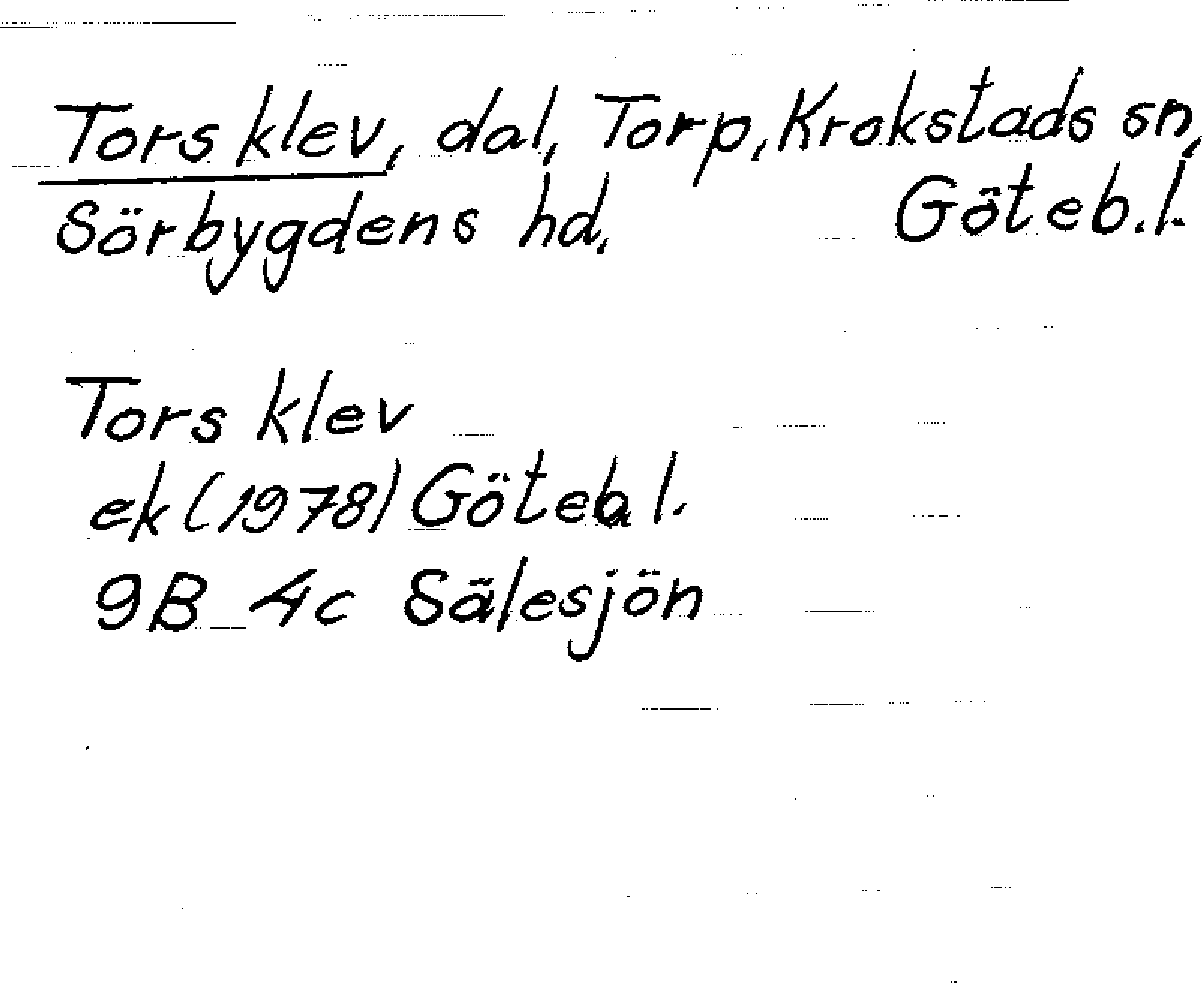 Tors klev, dal, Torp, Krokstads sn,
Sörbygdens hd. Göteb. l.
Tors klev
ek (1978) Göteb. l.
9B 4c Sälesjön